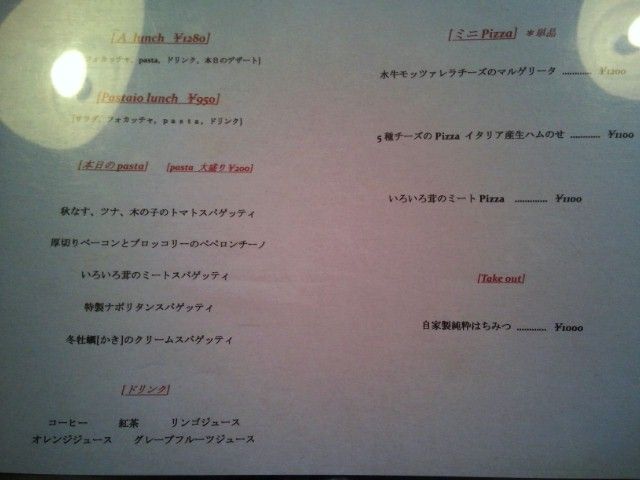 [A lunch ¥1280]
フォカッチャ, pasta, ドリンク, 本日のデザート]
[Pastaio lunch ¥950]
[サラダ, フォカッチャ, pasta, ドリンク]
[本日の pasta] [pasta 大盛り¥200]
秋なす、ツナ、木の子のトマトスパゲッティ
厚切りベーコンとブロッコリーのペペロンチーノ
いろいろ茸のミートスパゲッティ
特製ナポリタンスパゲッティ
冬牡蠣[かき]のクリームスパゲッティ
[ドリンク]
コーヒー 紅茶 リンゴジュース
オレンジジュース グレープフルーツジュース
[ミニ Pizza] *単品
水牛モッツァレラチーズのマルゲリータ ............ ¥1200
5種チーズの Pizza イタリア産生ハムのせ ............ ¥1100
いろいろ茸のミート Pizza ............. ¥1100
[Take out]
自家製純粋はちみつ ............ ¥1000